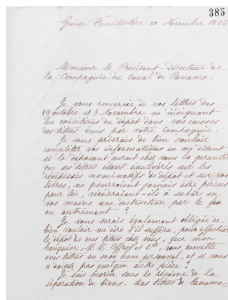 385
Guise Familistère 10 Novembre 18
Monsieur le Président Directeur de
la Compagnie du Canal de Panama.
Je vous remercie de vos lettres des
29 octobre et 3 Novembre m'indiquant
les conditions du dépôt dans vos caisses
des titres émis par votre Compagnie.
Je vous prierais de bien vouloir
compléter vos informations en me disant
si le déposant aurait chez vous la garantie
que ses titres étant inscrits sur les
récépissés nominatifs de dépôt et sur vos
livres, ne pourraient jamais être perdus
pour lui, viendraient-ils à subir en
vos mains une destruction par le feu
ou autrement.
Je vous serais également obligée de
bien vouloir me dire s'il suffira, pour effectuer
le dépôt de mes titres chez vous, que mon
banquier, M. et Cie vous remette
mes titres en mon nom personnel, et si vous
n'exigez pas quelque autre pièce.
Je suis mariée sous le régime de la
séparation de biens. Mes titres de Panama